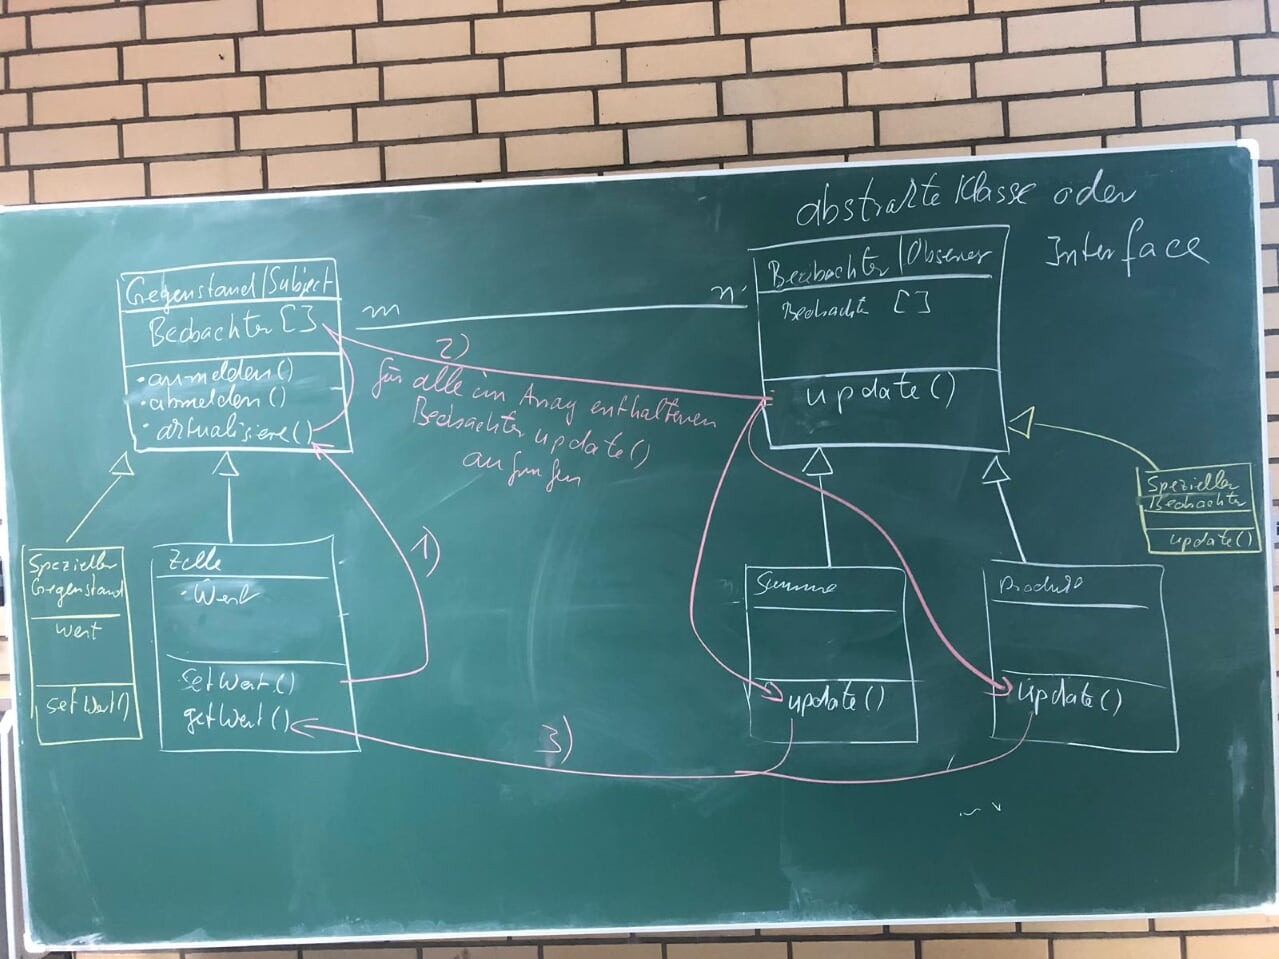 abstrakte Klasse oder
Interface
Gegenstand/Subject
Beobachter []
• anmelden()
• abmelden()
• aktualisiere()
m
n
Beobachter/Observer
Beobachte []
update()
2)
für alle im Array enthaltenen
Beobachter update()
aufrufen
1)
Spezieller
Gegenstand
Wert
setWert()
Zelle
• Wert
setWert()
getWert()
3)
Summe
update()
Produkt
update()
Spezieller
Beobachter
update()